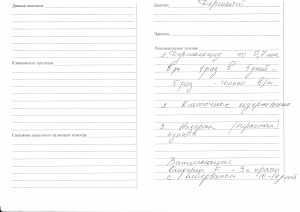 Данные анамнеза
Клинические признаки
Состояние животного на момент осмотра
Диагноз
Дерматит
Прогноз
Рекомендуемое лечение
1. по 0,7 мл
в/м 1 раз в 3 дней -
5 раз - только в/м
2. Клеточное содержание
3. Низорал
Вакцинация
Вакдерм F - 3х кратно
с интервалом 10-14 дней